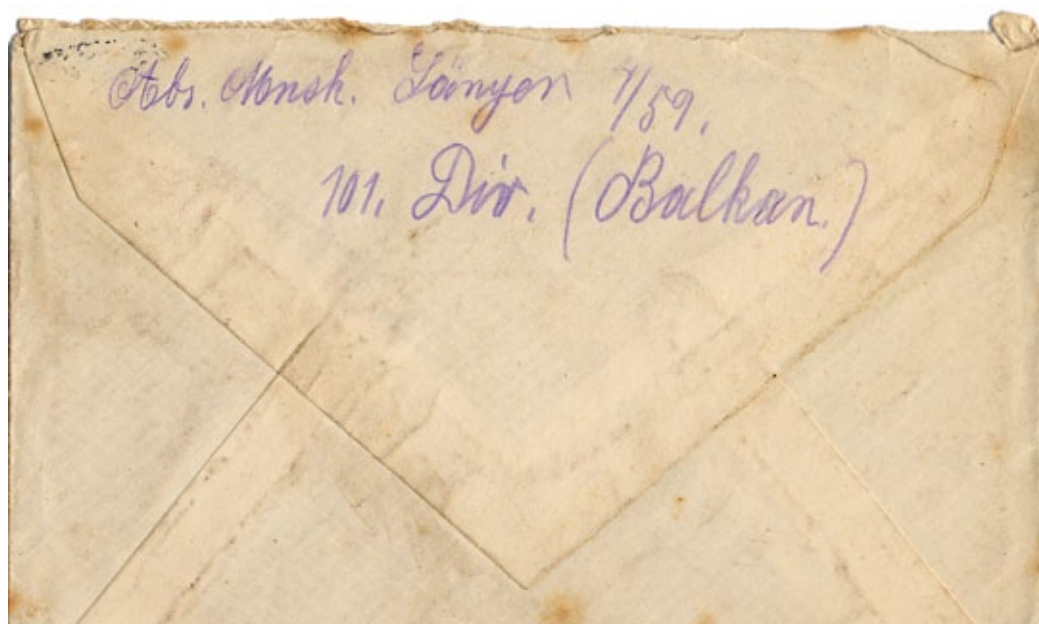 Abs. Mnsk. Länger 7/59.
101. Div. (Balkan.)